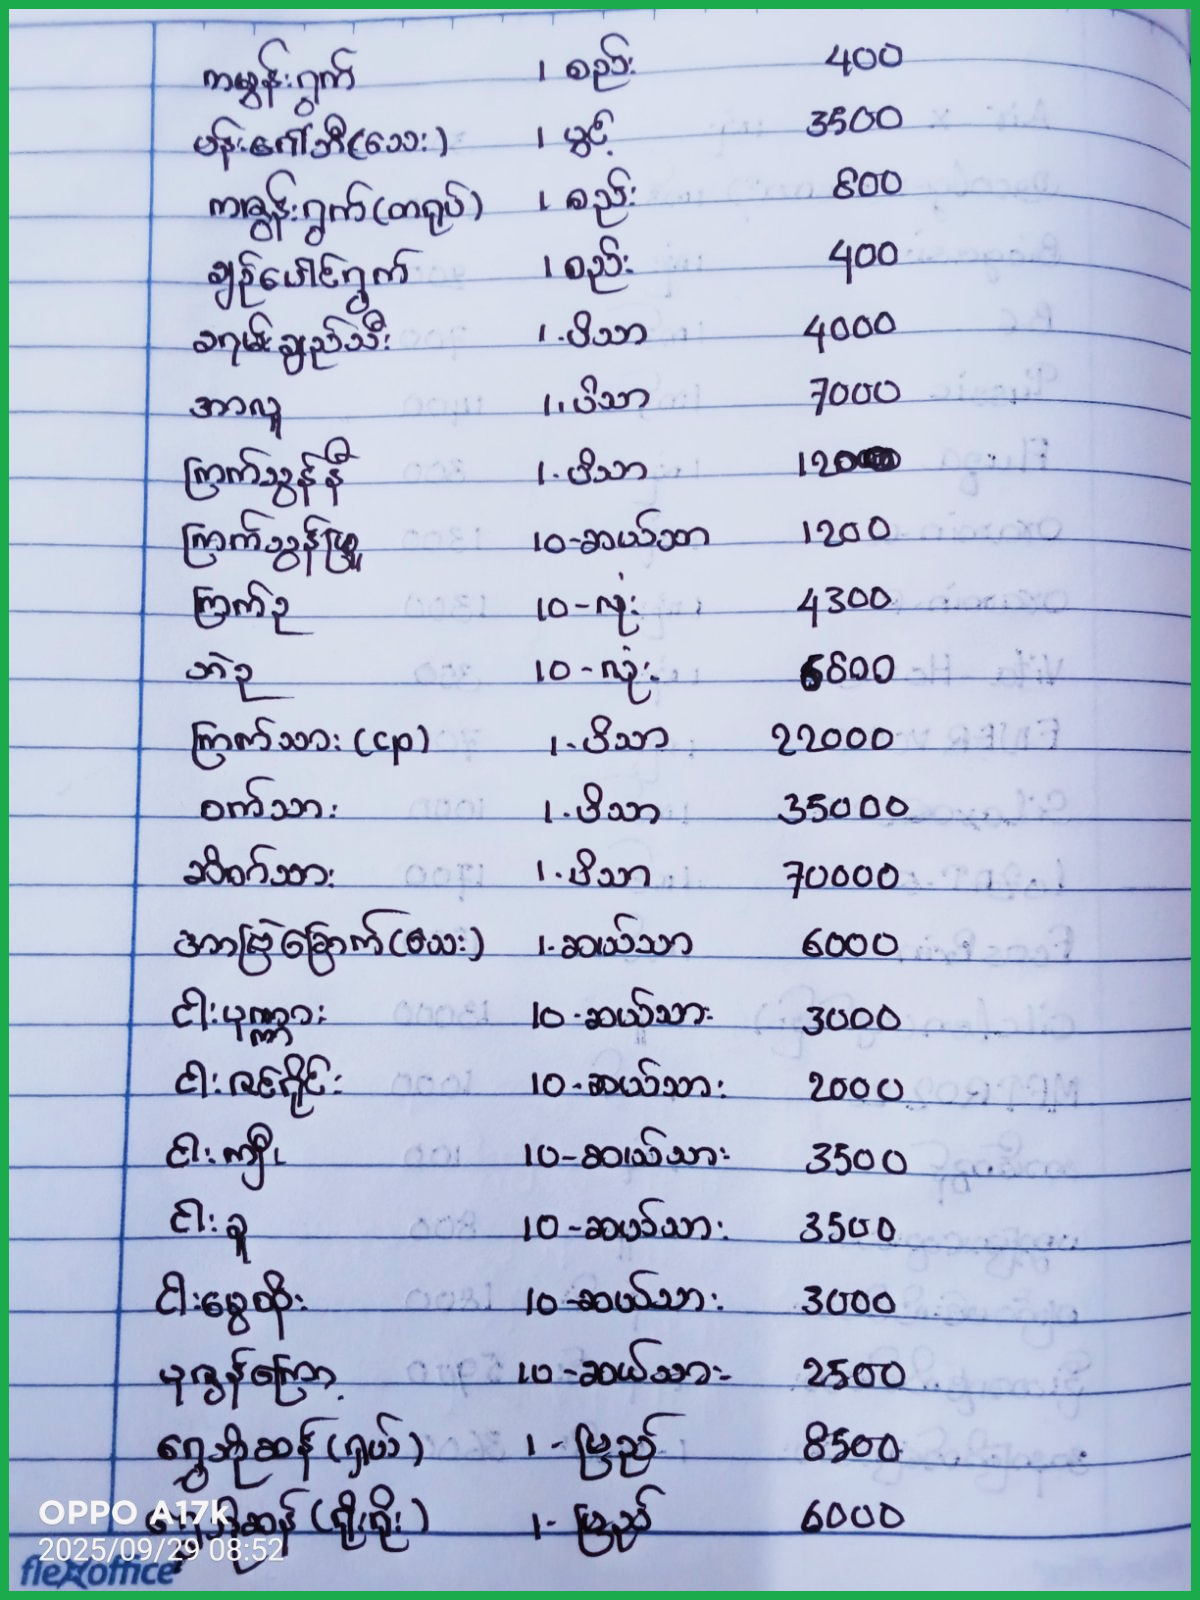 ကစွန်းရွက် ၊ စည်း 400
ပန်းဂေါ်ဘီ(သေး) ၊ ပွင့် 3500
ကစွန်းရွက်(တရုပ်) ၊ စည်း 800
ချဉ်ပေါင်ရွက် ၊ စည်း 400
ခရမ်းချည်သီး 1.ပိသာ 4000
အာလူ 1.ပိသာ 7000
ကြက်သွန်နီ 1.ပိသာ
ကြက်သွန်ဖြူ 10-ဆယ်သာ 1200
ကြက်ဥ 10-လုံး 4300
ဘဲဥ 10-လုံး 6800
ကြက်သား(cp) 1.ပိသာ 22000
ဝက်သား 1.ပိသာ 35000
ဆိတ်သား 1.ပိသာ 70000
အာမဲခြောက်(သေး) 1-ဆယ်သာ 6000
ငါးပုဏ္ဏား 10-ဆယ်သား 3000
ငါးဇင်ရိုင်း 10-ဆယ်သား 2000
ငါးကျီး 10-ဆယ်သား 3500
ငါးခူ 10-ဆယ်သား 3500
ငါးမွေထိုး 10-ဆယ်သား 3000
ပုဇွန်ကြော့ 10-ဆယ်သား 2500
ရွှေဘိုဆန်(ရှယ်) 1-မြည် 8500
ရွှေဘိုဆန်(ရိုးရိုး) 1-မြည် 6000
OPPO A17k
2025/09/29 08:52
flexoffice